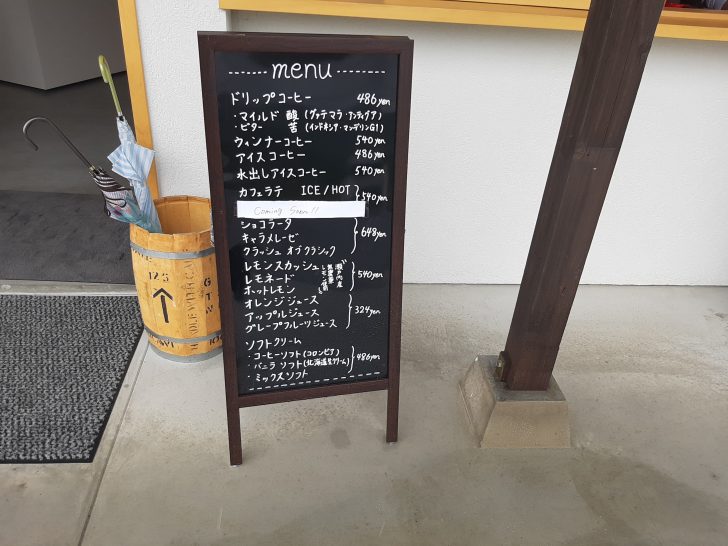 menu
ドリップコーヒー 486yen
・マイルド 酸 (グァテマラ・アンティグア)
・ビター 苦 (インドネシア・マンデリンG1)
ウィンナーコーヒー 540yen
アイスコーヒー 486yen
水出しアイスコーヒー 540yen
カフェラテ ICE/HOT 540yen
Coming Soon!!
ショコラータ
キャラメレービ 648yen
クラッシュ オブ クラシック
レモンスカッシュ
レモネード 540yen
ホットレモン
瀬戸内産
オレンジジュース
アップルジュース 324yen
グレープフルーツジュース
ソフトクリーム
・コーヒーソフト(コロンビア)
・バニラソフト(北海道生クリーム) 486yen
・ミックスソフト